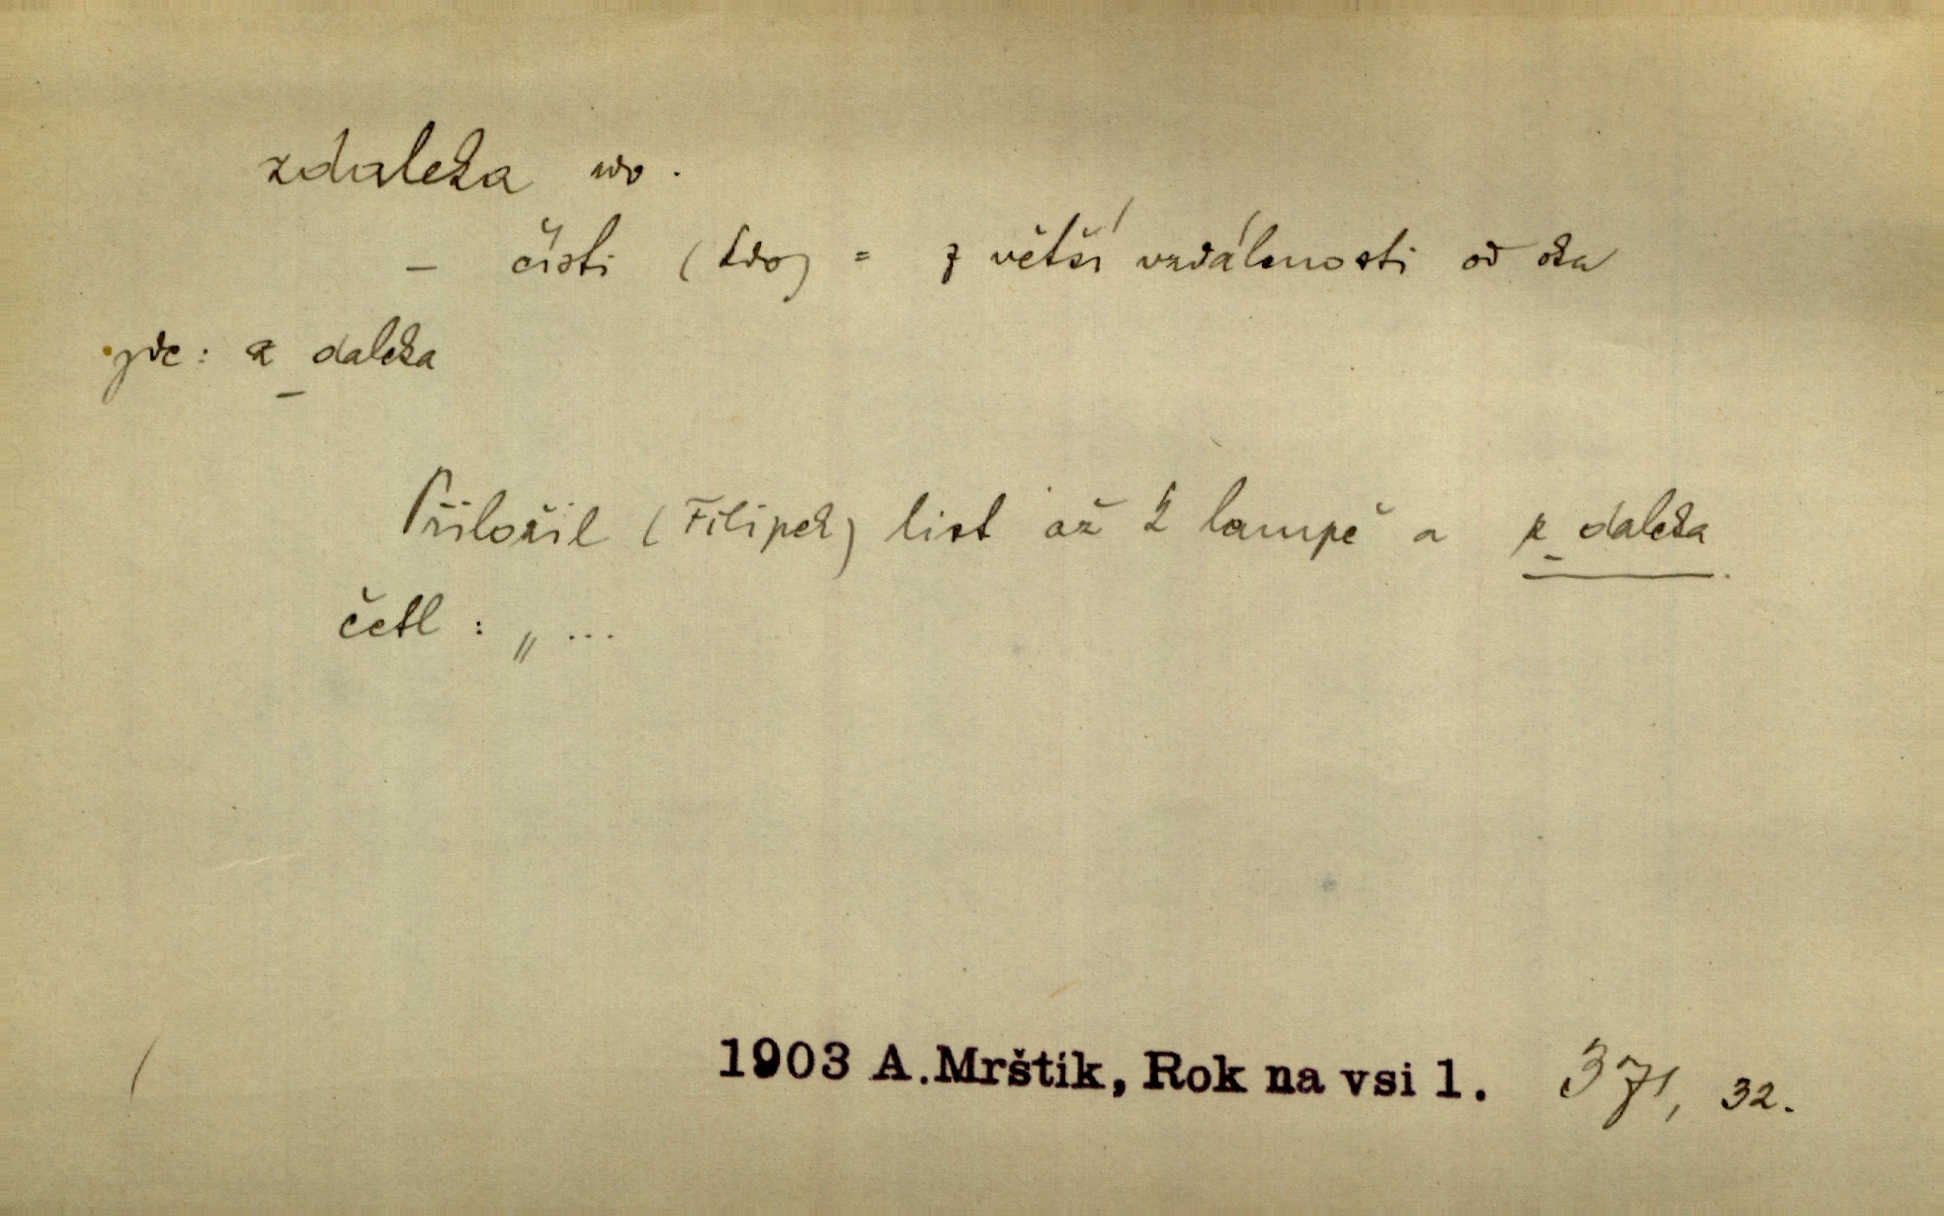 zdaleka
– čísti (kdo) = z větší vzdálenosti od oka
zde: z daleka
Přiložil (Filípek) list až k lampě a z daleka
četl : „ ...
1903 A.Mrštík, Rok na vsi 1. 371, 32.